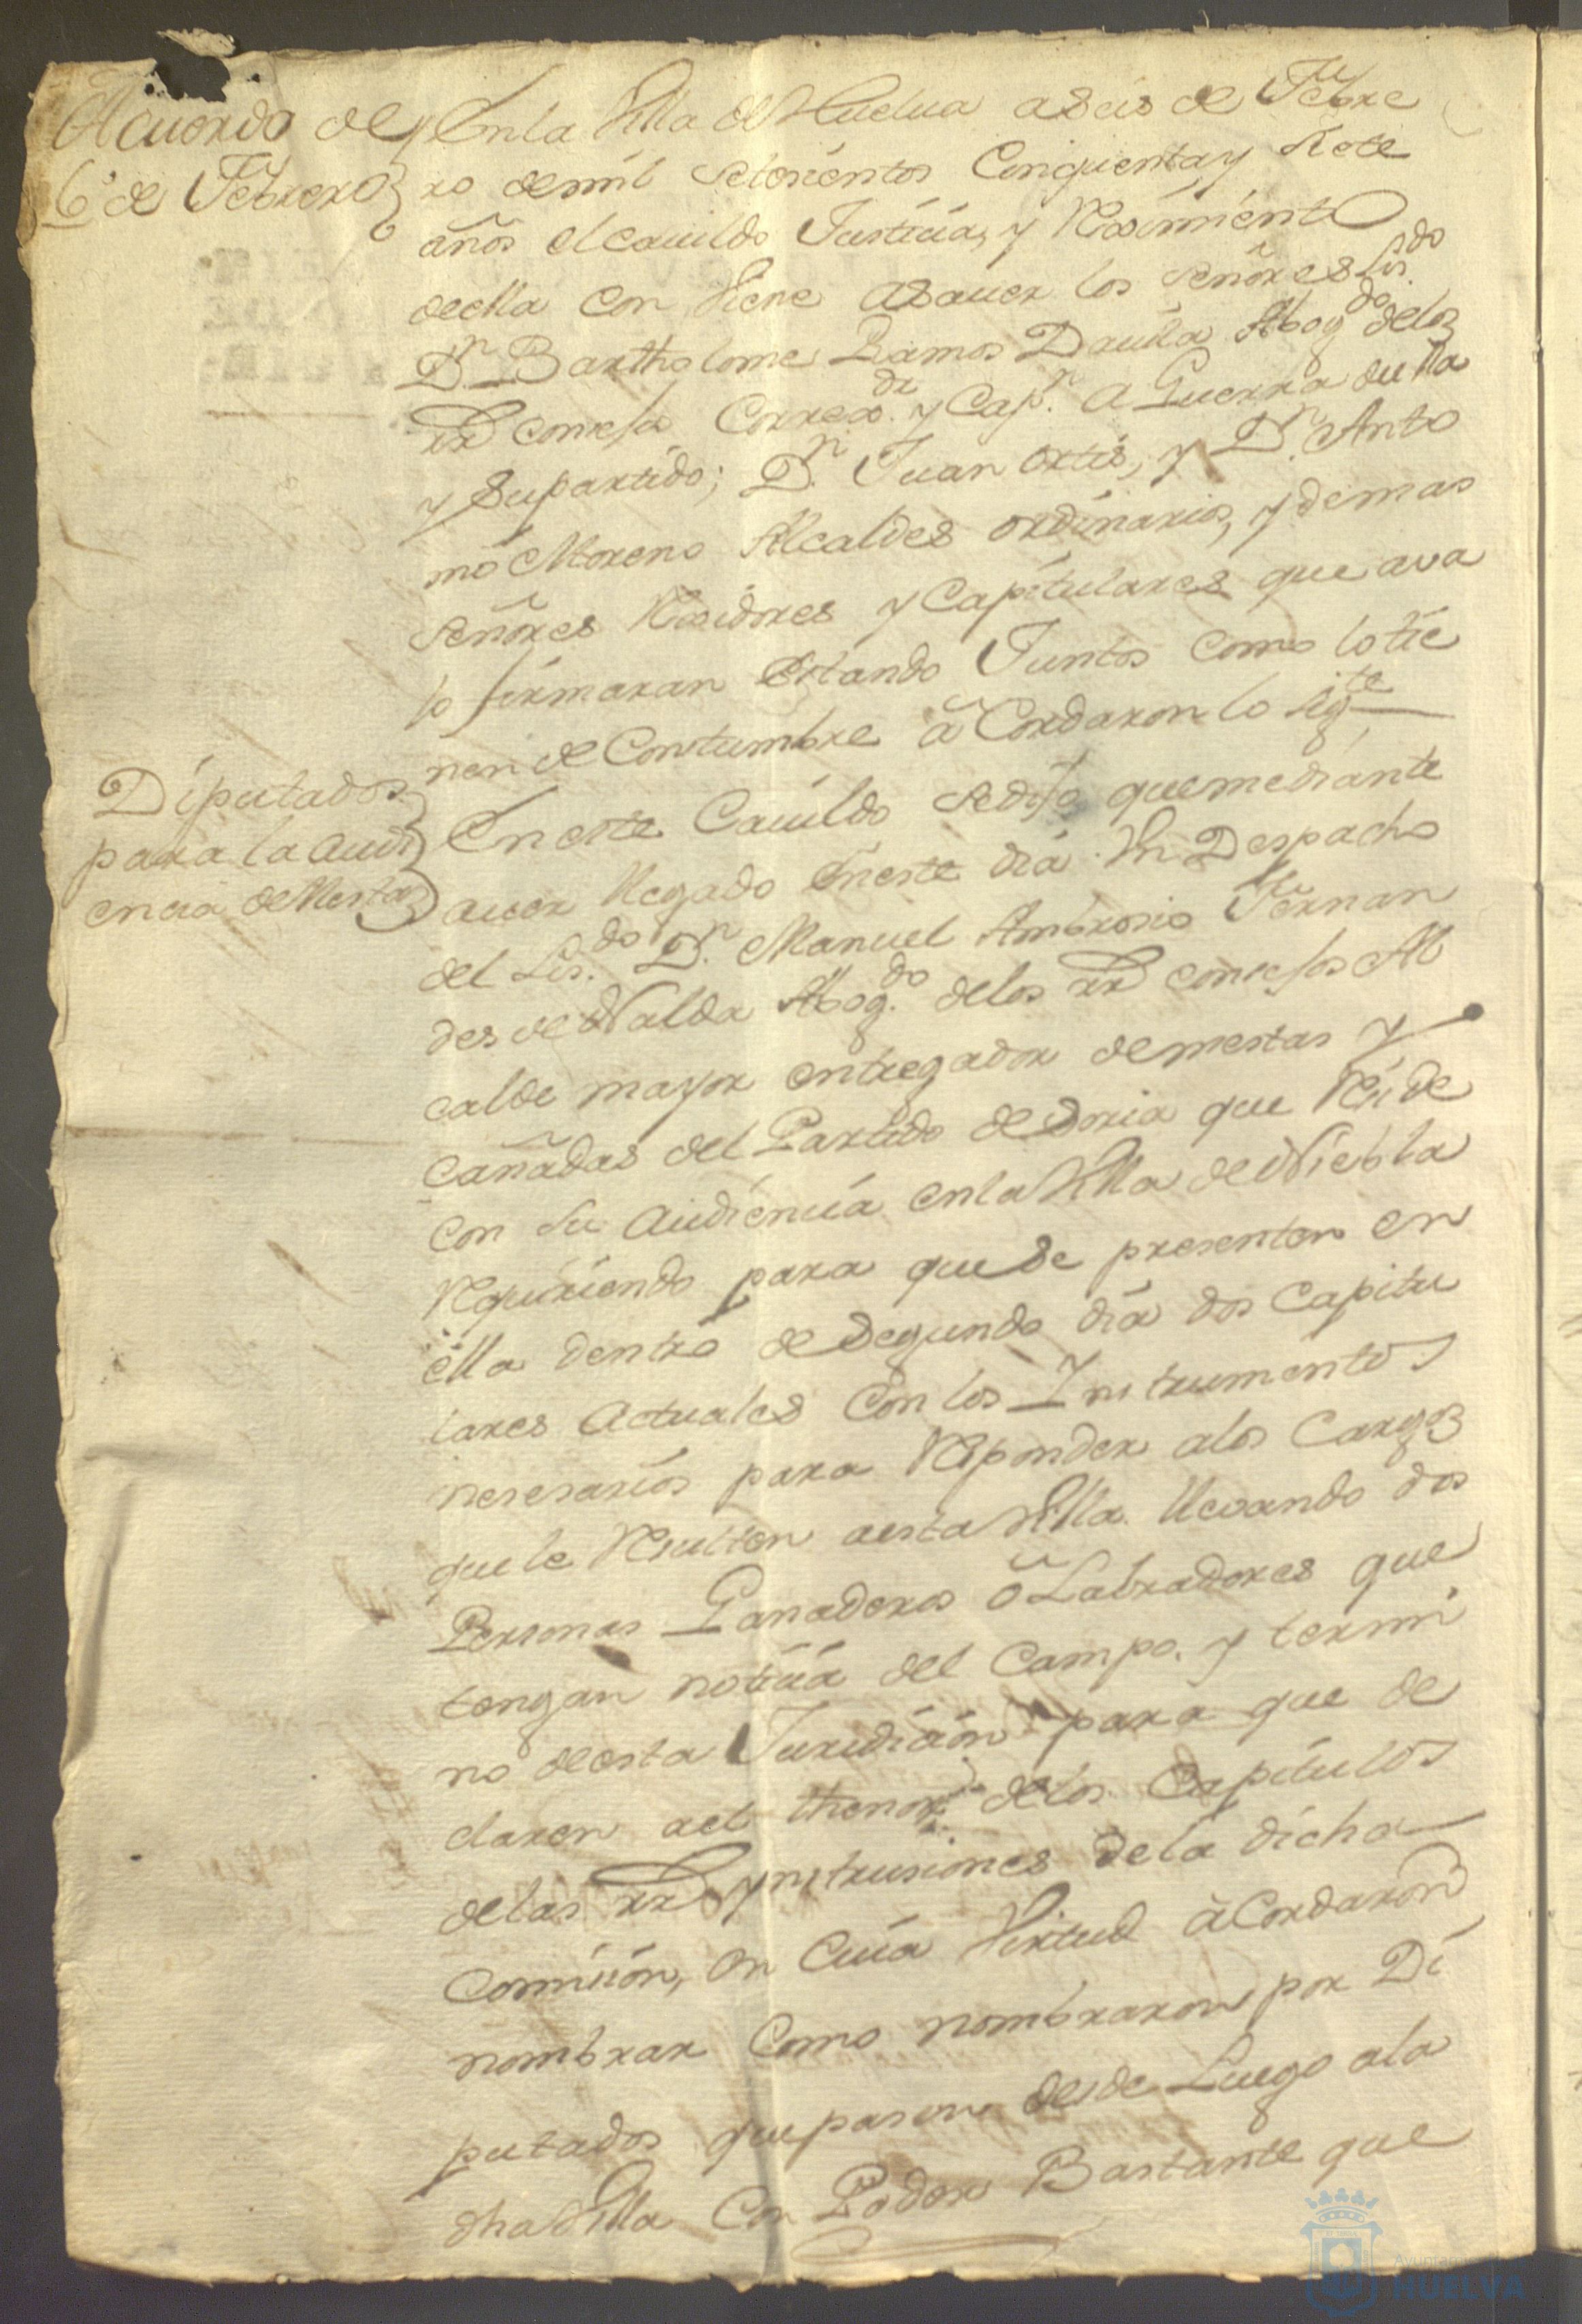 Acuerdo de
6º de Febrero
En la Villa de Huelua a seis de Febre
ro de mil setesientos Cinquenta y siete
años el cauildo Justicia, y Reximiento
de ella conviene a sauer los señores Lis.do
Dn. Bartholome Ramos Dauila Abog.do de los
RRs consejos Correx.or y Cap.n a Guerra de ella
y su partido; Dn. Juan Ortis, y Dn. Anto
nio Moreno Alcaldes ordinarios, y demas
señores Rexidores y Capitulares que aua
lo firmaran Estando Juntos como lo tie
nen de Constumbre acordaron lo sig.te
Diputados
para la audi
encia de Mesta
En este Cauildo se dijo que mediante
auer llegado en este dia Un Despacho
del Lis.do Dn. Manuel Ambrosio Fernan
des de Valda Abog.do de los RRs consejos Al
calde mayor entregador de mestas y
cañadas del Partido de Soria que Reside
con su audiencia en la Villa de Niebla
Requiriendo para que se presenten en
ella dentro de segundo dia dos Capitu
lares actuales con los Instrumentos
nesesarios para Responder a los Cargos
que le Resulten a esta Villa lleuando dos
Personas Ganaderos o Labradores que
tengan noticia del Campo, y termi
no de esta Jurisdicion para que de
claren al thenor de los Capitulos
de las RRs Ynstrusiones de la dicha
Comision, en cuia Virtud acordaron
nombrar como nombraron por Di
putados que pasen desde Luego a la
dha Villa Con Poder Bastante que
Ayuntamiento de
HUELVA